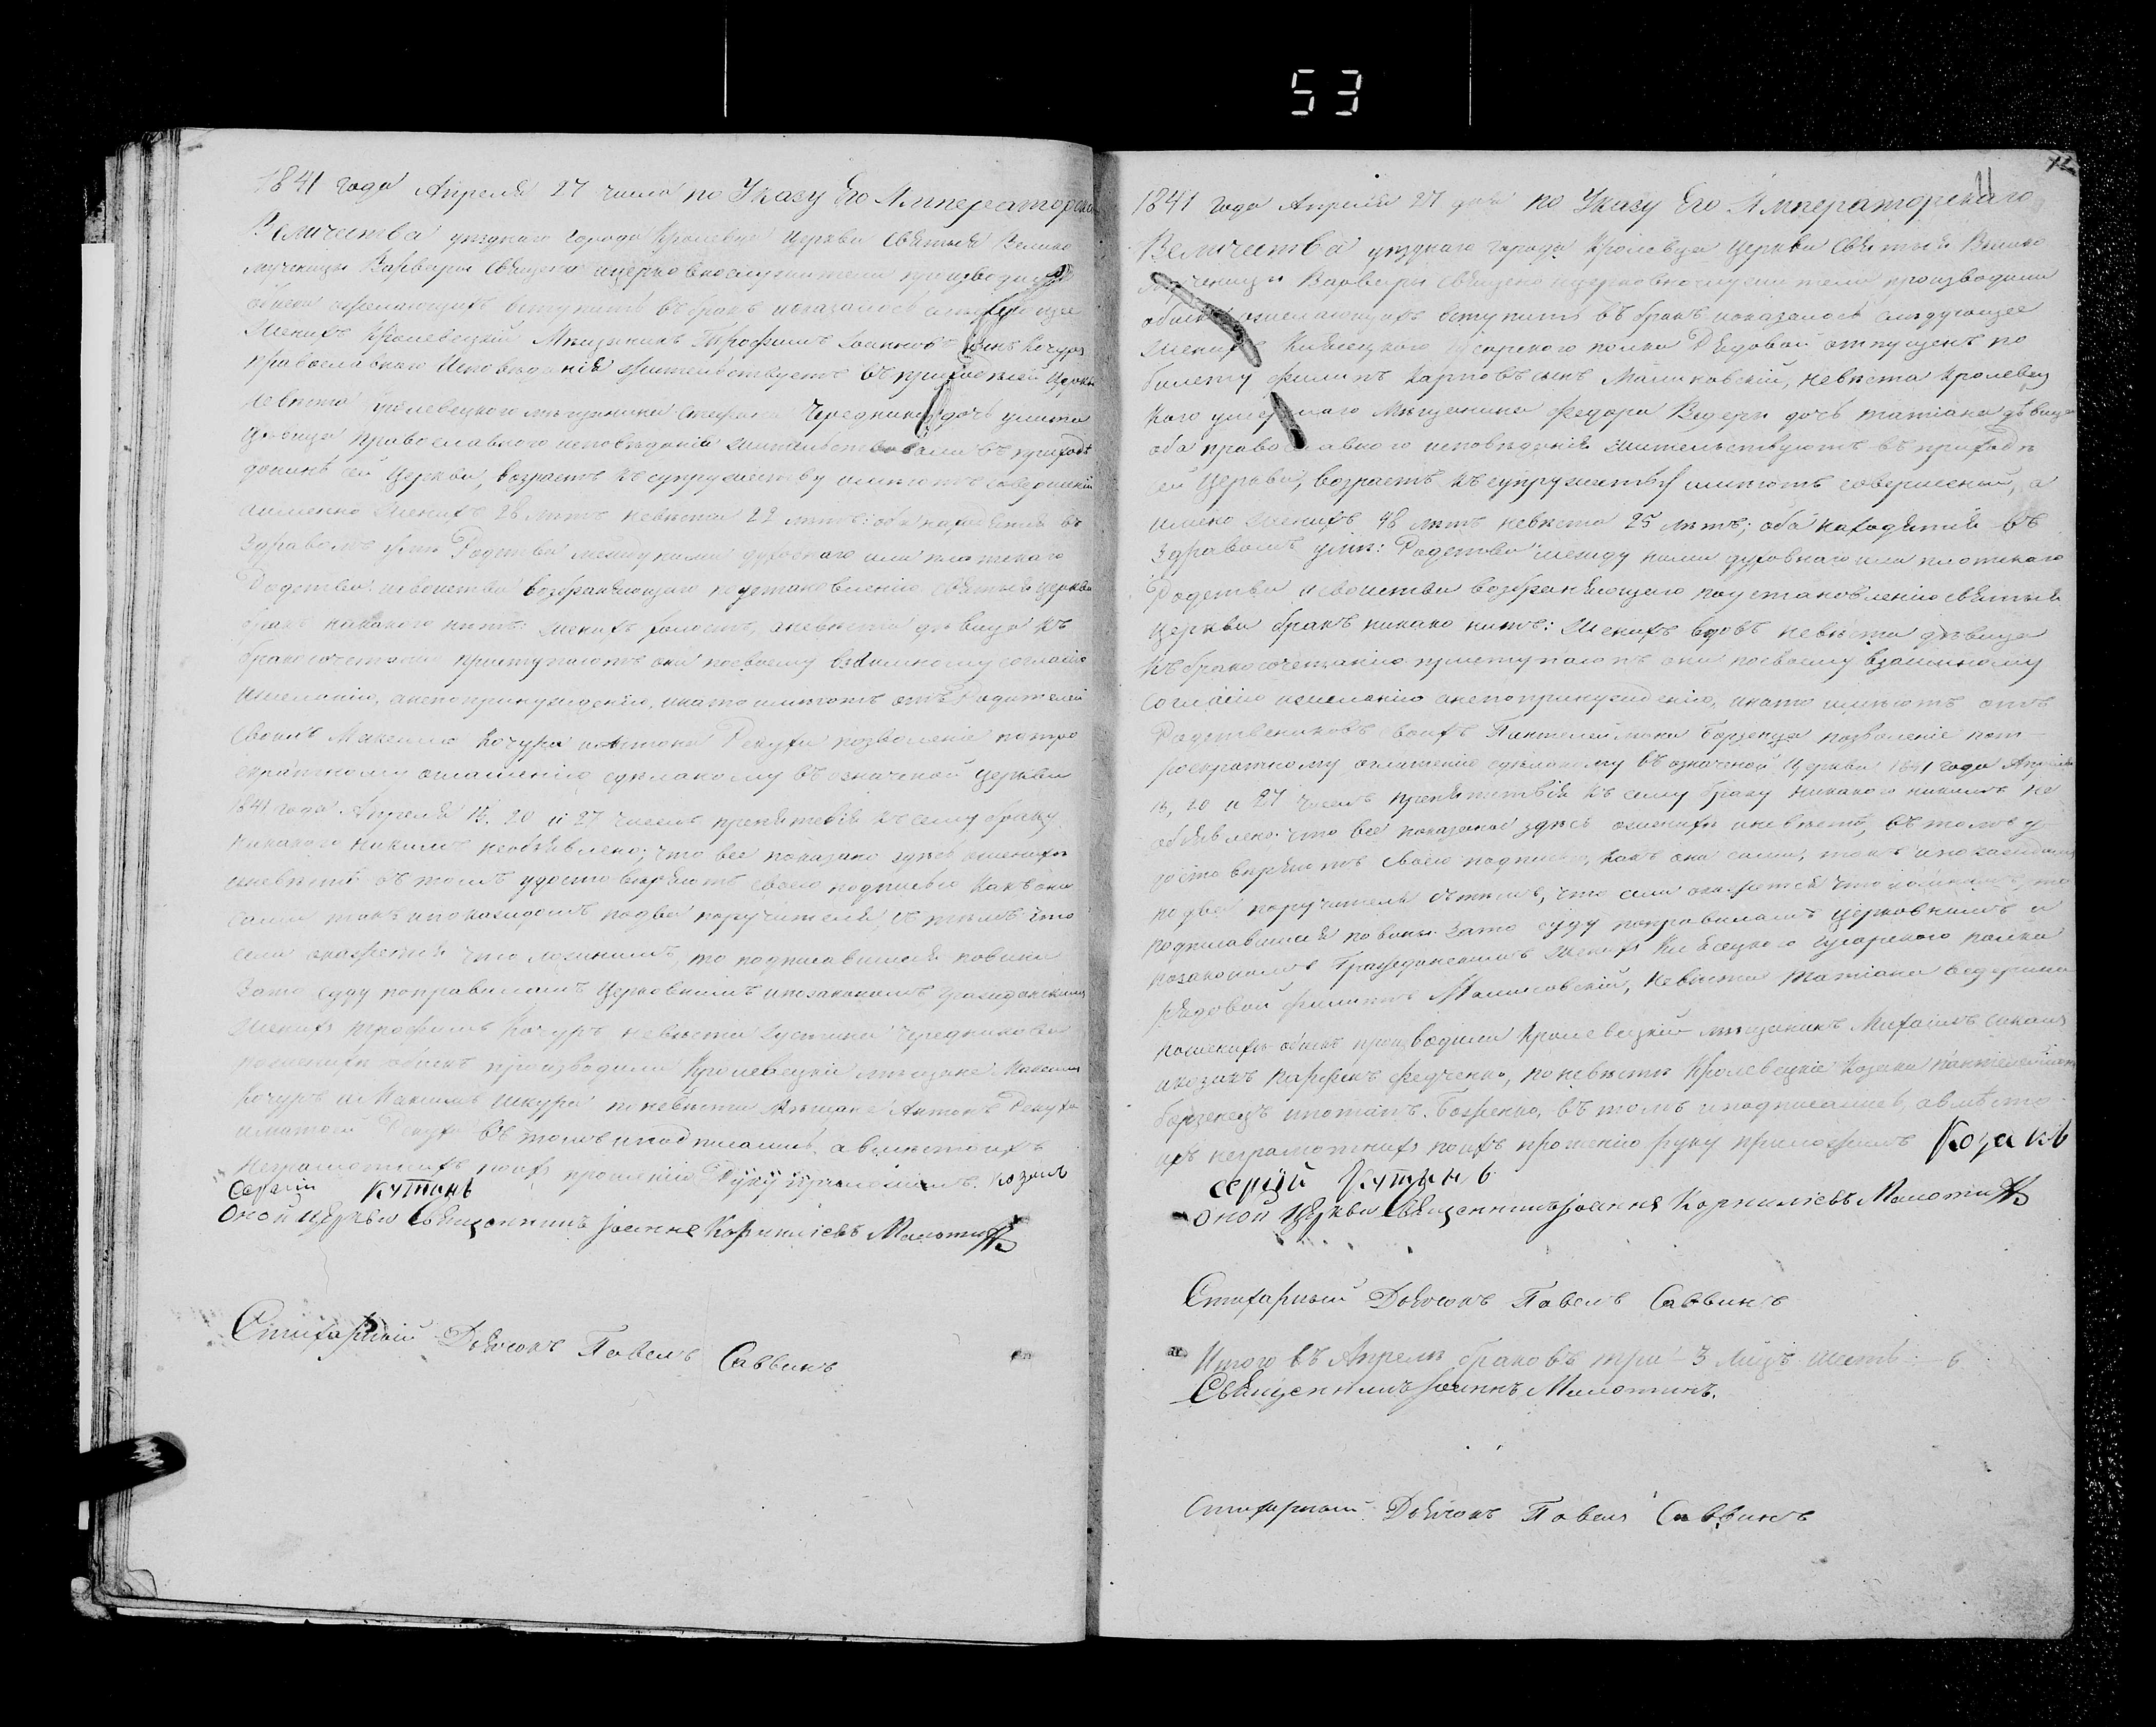 53
1841 года Апреля 27 числа по Указу Его Императорска
Величества уезднаго города Кролевца Церкви Святыя Велико
мученицы Варвары Священо ицерковнослужители производили
обыск желающих вступить в брак и оказалось следующее
Жених Кролевецкий Мещанин Трофим сын Кочура
православного Исповедания жительствует в приходе сей Церкви
невеста Кролевецкого мещанина Стефана Чередника дочь
православного исповедания жительствовала в приходе
доныне сей Церкви, возраст к супружеству имеют совершений
аименно жених 28 лет невеста 22 лет: оба находятся в
здравом уме Родства между ними духовнаго или плотскаго
Родства исвойства возбраняющаго по установлению святыя церкви
брак никакого нет: жених холост, аневеста девица к
бракосочетанию приступают они посвоему взаимному согласию
ижеланию, анепопринуждению, инато имеют от Родителей
своих Максима Кочура иАнтона Рекухи позволение потро
екратному оглашению сделаному в означеной Церкви
1841 года Апреля 18. 20 и 27 числ препятствия ксему браку
никакого никем необъявлено; что все показано здесь ожених
иневесте в том удостоверяют своею подписью как они
сами так и по каждом подва поручителя, с тем что
если окажется что ложним, то подписавшиеся повини
зато суду поправилам Церковним ипозаконам гражданским
жених трофим Кочур невеста Чередникова
пожених обыск производили Кролевецкие мещане Максим
Кочур и Максим шкура поневести Мещане Антон Рекуха
Рекуха в том иподписались. авместоих
неграмотних поих прошению Руку приложил. козак
Сергий Кутинь
Оной церкви Священник Іоанне Корнилиевъ Малоти
Стихарный Дьячокъ Павелъ Саввинъ
11
12
1841 года Апреля 27 дня по Указу Его Императорскаго
Величества уезднаго города Кролевца Церкви Святыя Велико
мученицы Варвары Священо ицерковнослужители производили
обыск желающих вступить в брак иоказалось следующее
Жених гусарского полка Рядовой отпущен по
билету филипъ Карповъ сынъ Маликовский, невеста Кролевец
кого умершаго Мещанина федора Ведери дочь татиана девица
оба православного исповедания жительствуют в приходе
сей Церкви, возраст к супружеству имеют совершеной, а
имено жених 48 лет невеста 25 лет; оба находятся в
здравом уме: Родства между ними духовнаго или плотскаго
Родства исвойства возбраняющаго поустановлению святыя
Церкви брак никако нет: Жених вдов невеста девица
к бракосочетанию приступают они посвоему взаимному
согласию ижеланию анепопринуждению, инато имеют от
Родствеников своих Пантелеймона Борзенца позволение пот
роекратному оглашению сделаному в означеной Церкви 1841 года Апреля
18, 20 и 27 числ препятствия к сему браку никакого никем не
объявлено: что все показаное здесь ожених иневесте, в том у
достоверяют своею подписью, как они сами, так ипокаждом
подва поручителя стем, что если окажется что ложним, то
подписавшиеся повини зато суду поправилам Церковним и
позаконам Гражданским жених гусарского полка
Рядовой филипъ Маликовский, невеста татиана ведерина
пожених обыск производили Кролевецкий мещанин Михаил
икозак Карфен Федченко, по невесте Кролевецкие козаки пантелеймон
борзенец ипотап. Боженко, в том иподписались, авместо
их неграмотних поих прошению руку приложил Козакъ
Сергій Кутинь
Оной Церкви Священник Іоанне Корнилиевъ Малоти
Стихарный Дьячокъ Павелъ Саввинъ
Итого въ Апреле браковъ три – 3 лицъ шесть – 6
Священникъ Іоаннъ Малотинъ.
Стихарный Дьячокъ Павелъ Саввинъ